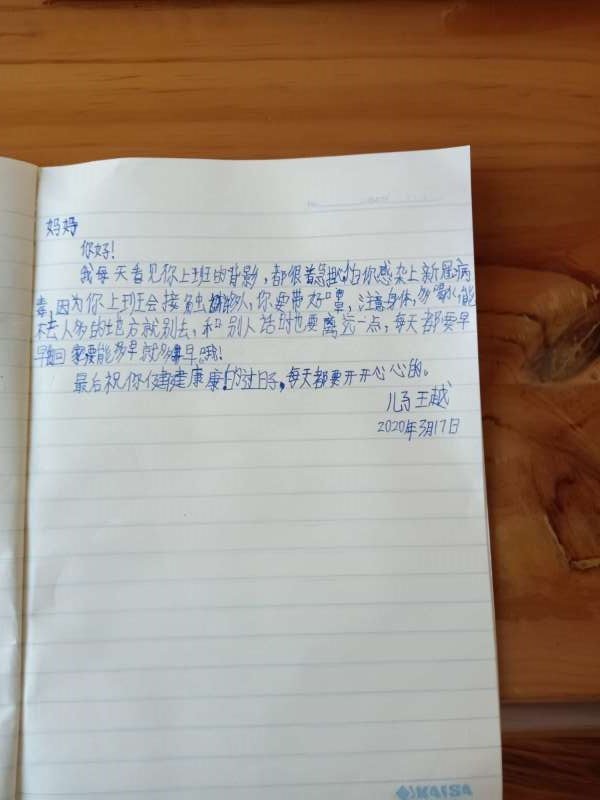 妈妈
你好!
我每天看见你上班的背影,都很着急担心怕你感染上新冠病
毒,因为你上班会接触很多人,你要带好口罩,注意身体,多喝水,能
不去人多的地方就别去,和别人话时也要离远一点,每天都要早
早回家要能多早就多早哦!
最后祝你健健康康的过日子,每天都要开开心心的。
儿子王越
2020年3月17日
KAISA